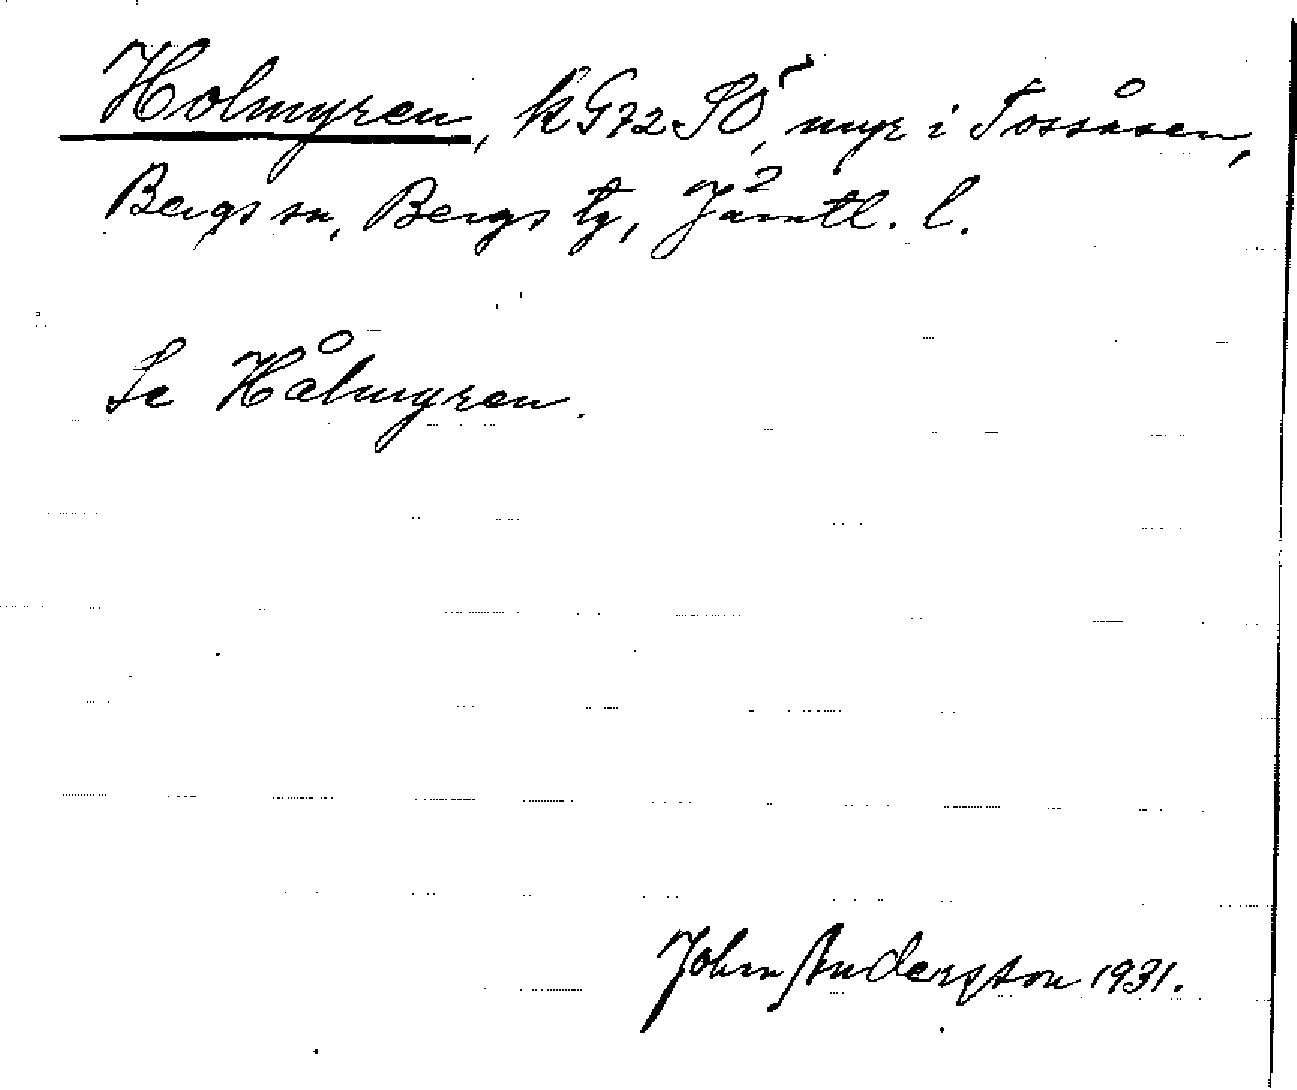 Holmyren, kG72SÖ, myr i Tossåsen,
Bergs sn, Bergs tg, Jämtl. l.
Se Hålmyren.
John Andersson 1931.